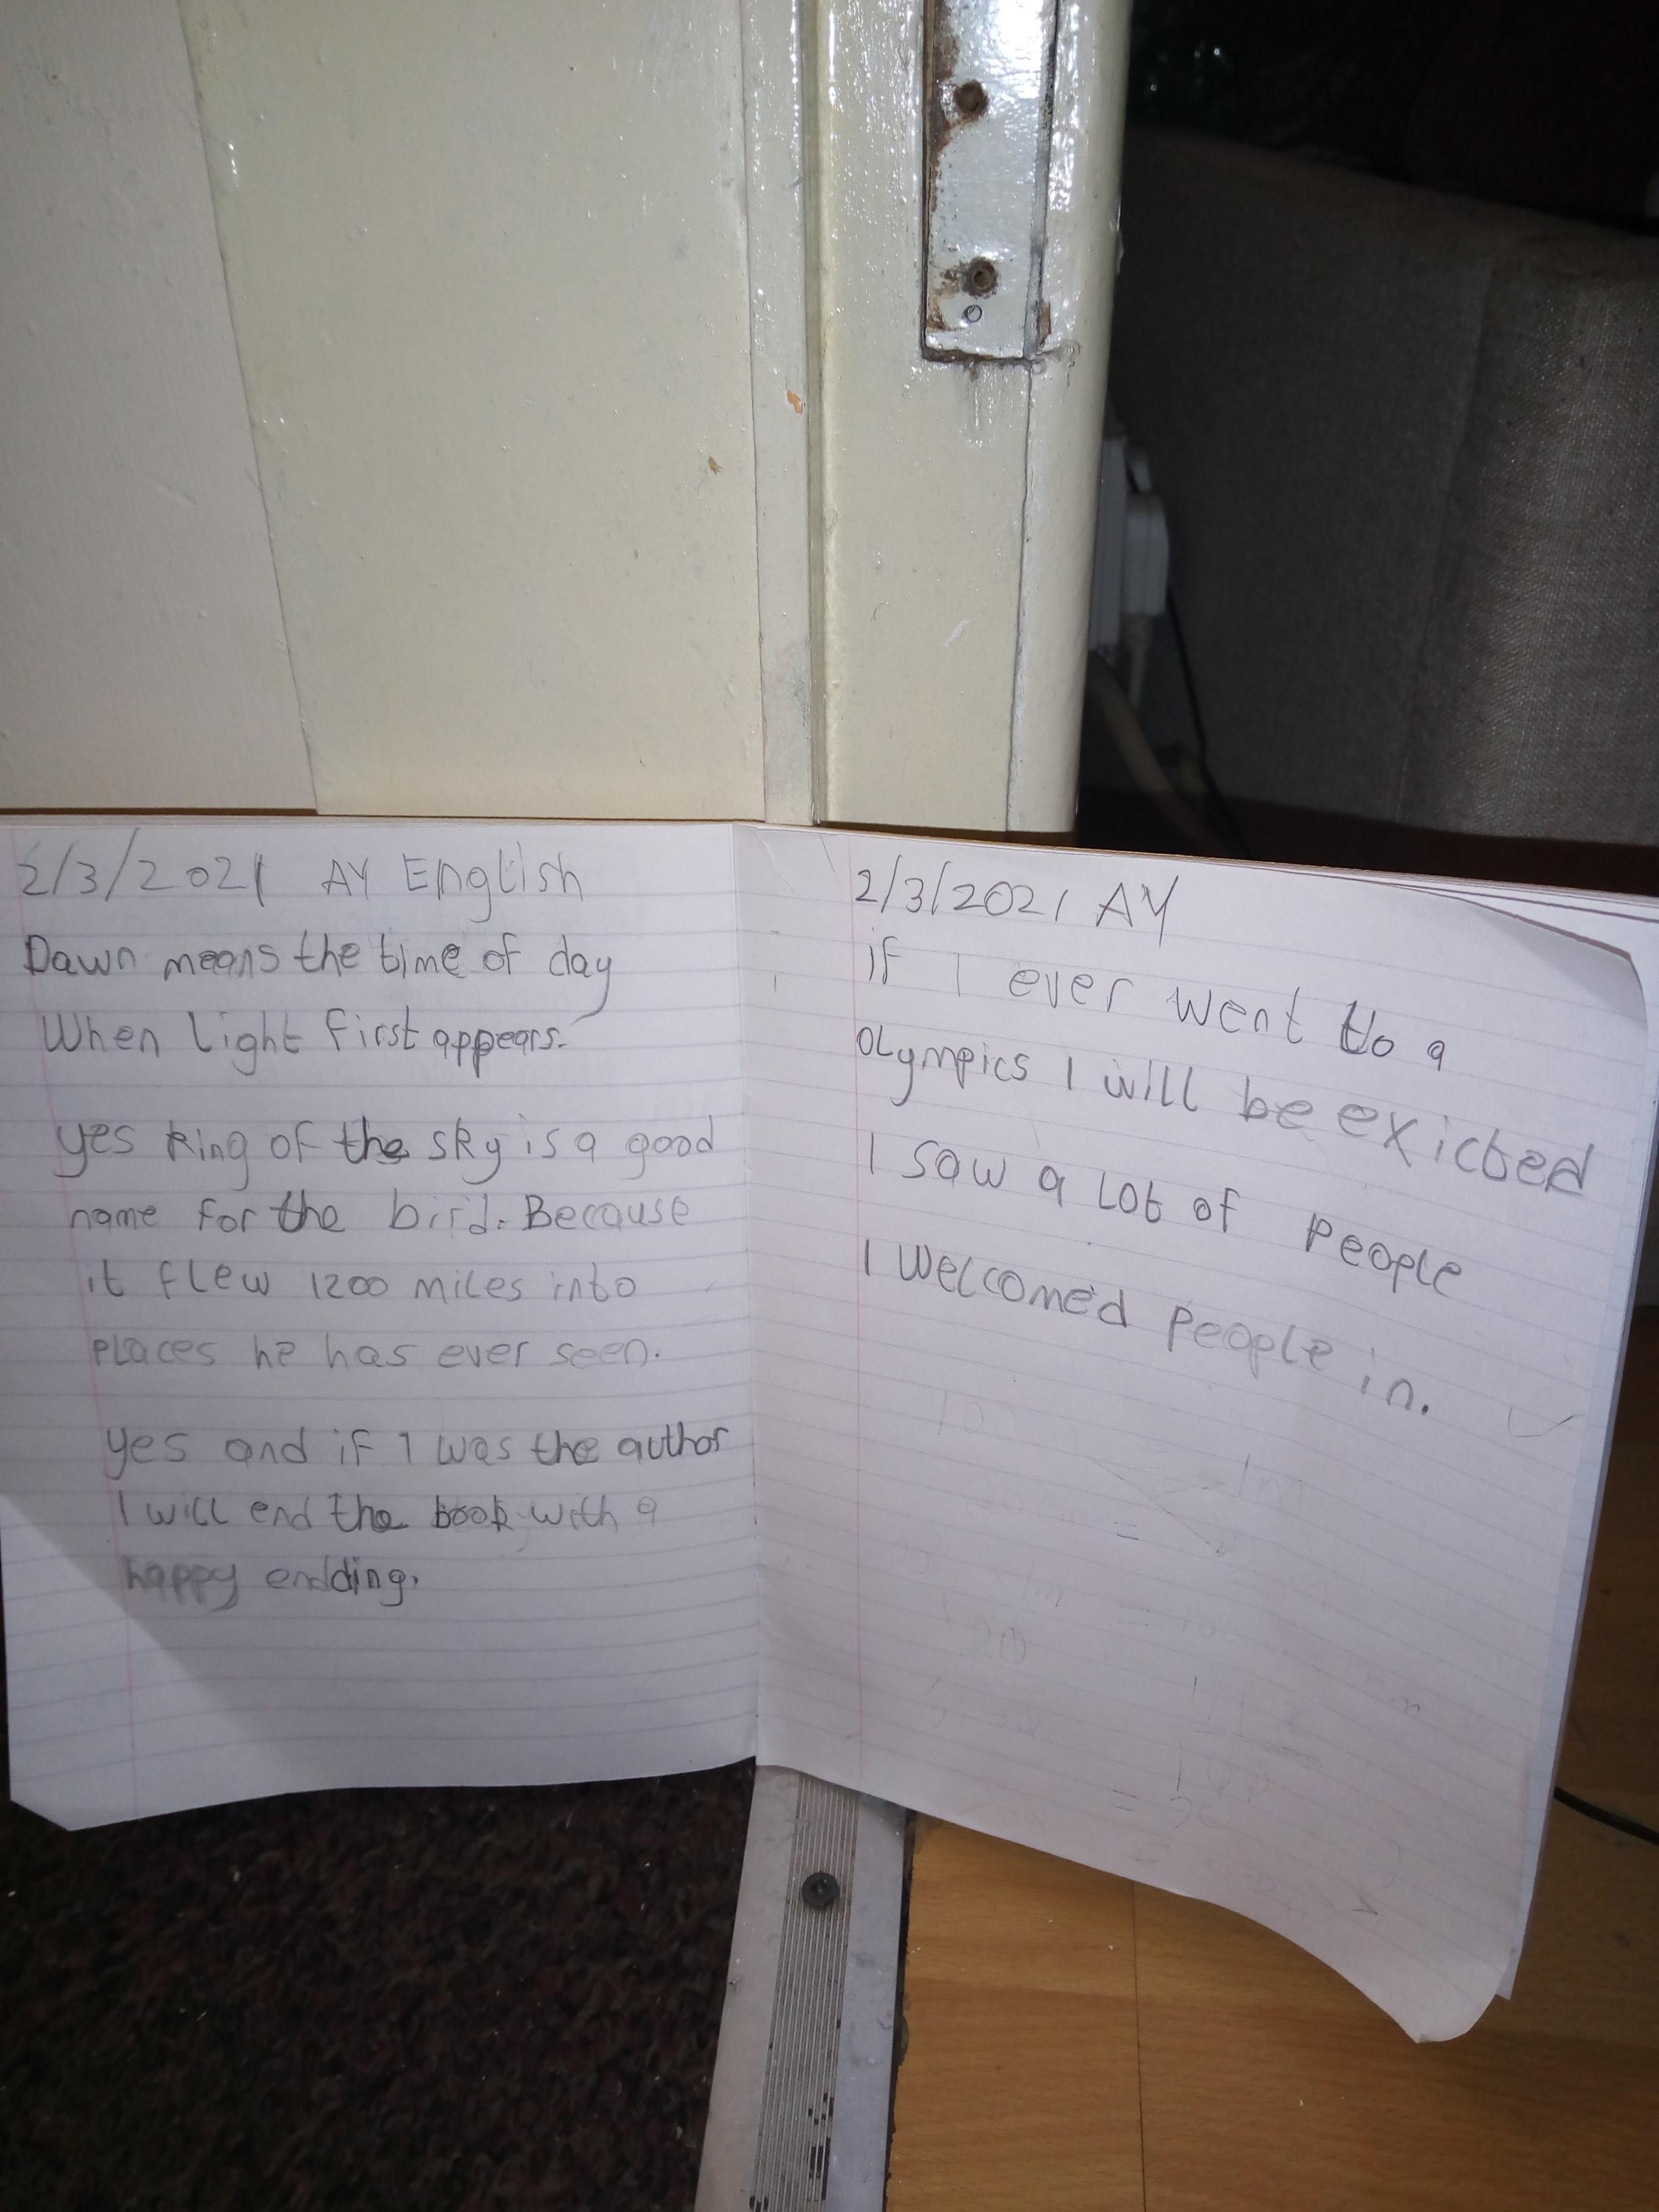 2/3/2021 AY English
Dawn means the time of day
When light first appears.
yes king of the sky is a good
name for the bird. Because
it flew 1200 miles into
places he has ever seen.
yes and if I was the author
I will end the book with a
happy endding.
2/3/2021 AY
if I ever went to a
olympics I will be exicted
I saw a lot of people
I welcomed people in.